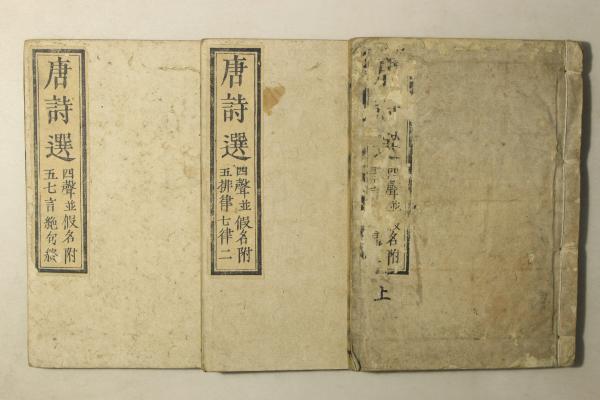 詩
四聲並假名附
上
唐詩選
四聲並假名附
五排律七律二
唐詩選
四聲並假名附
五七言絶句